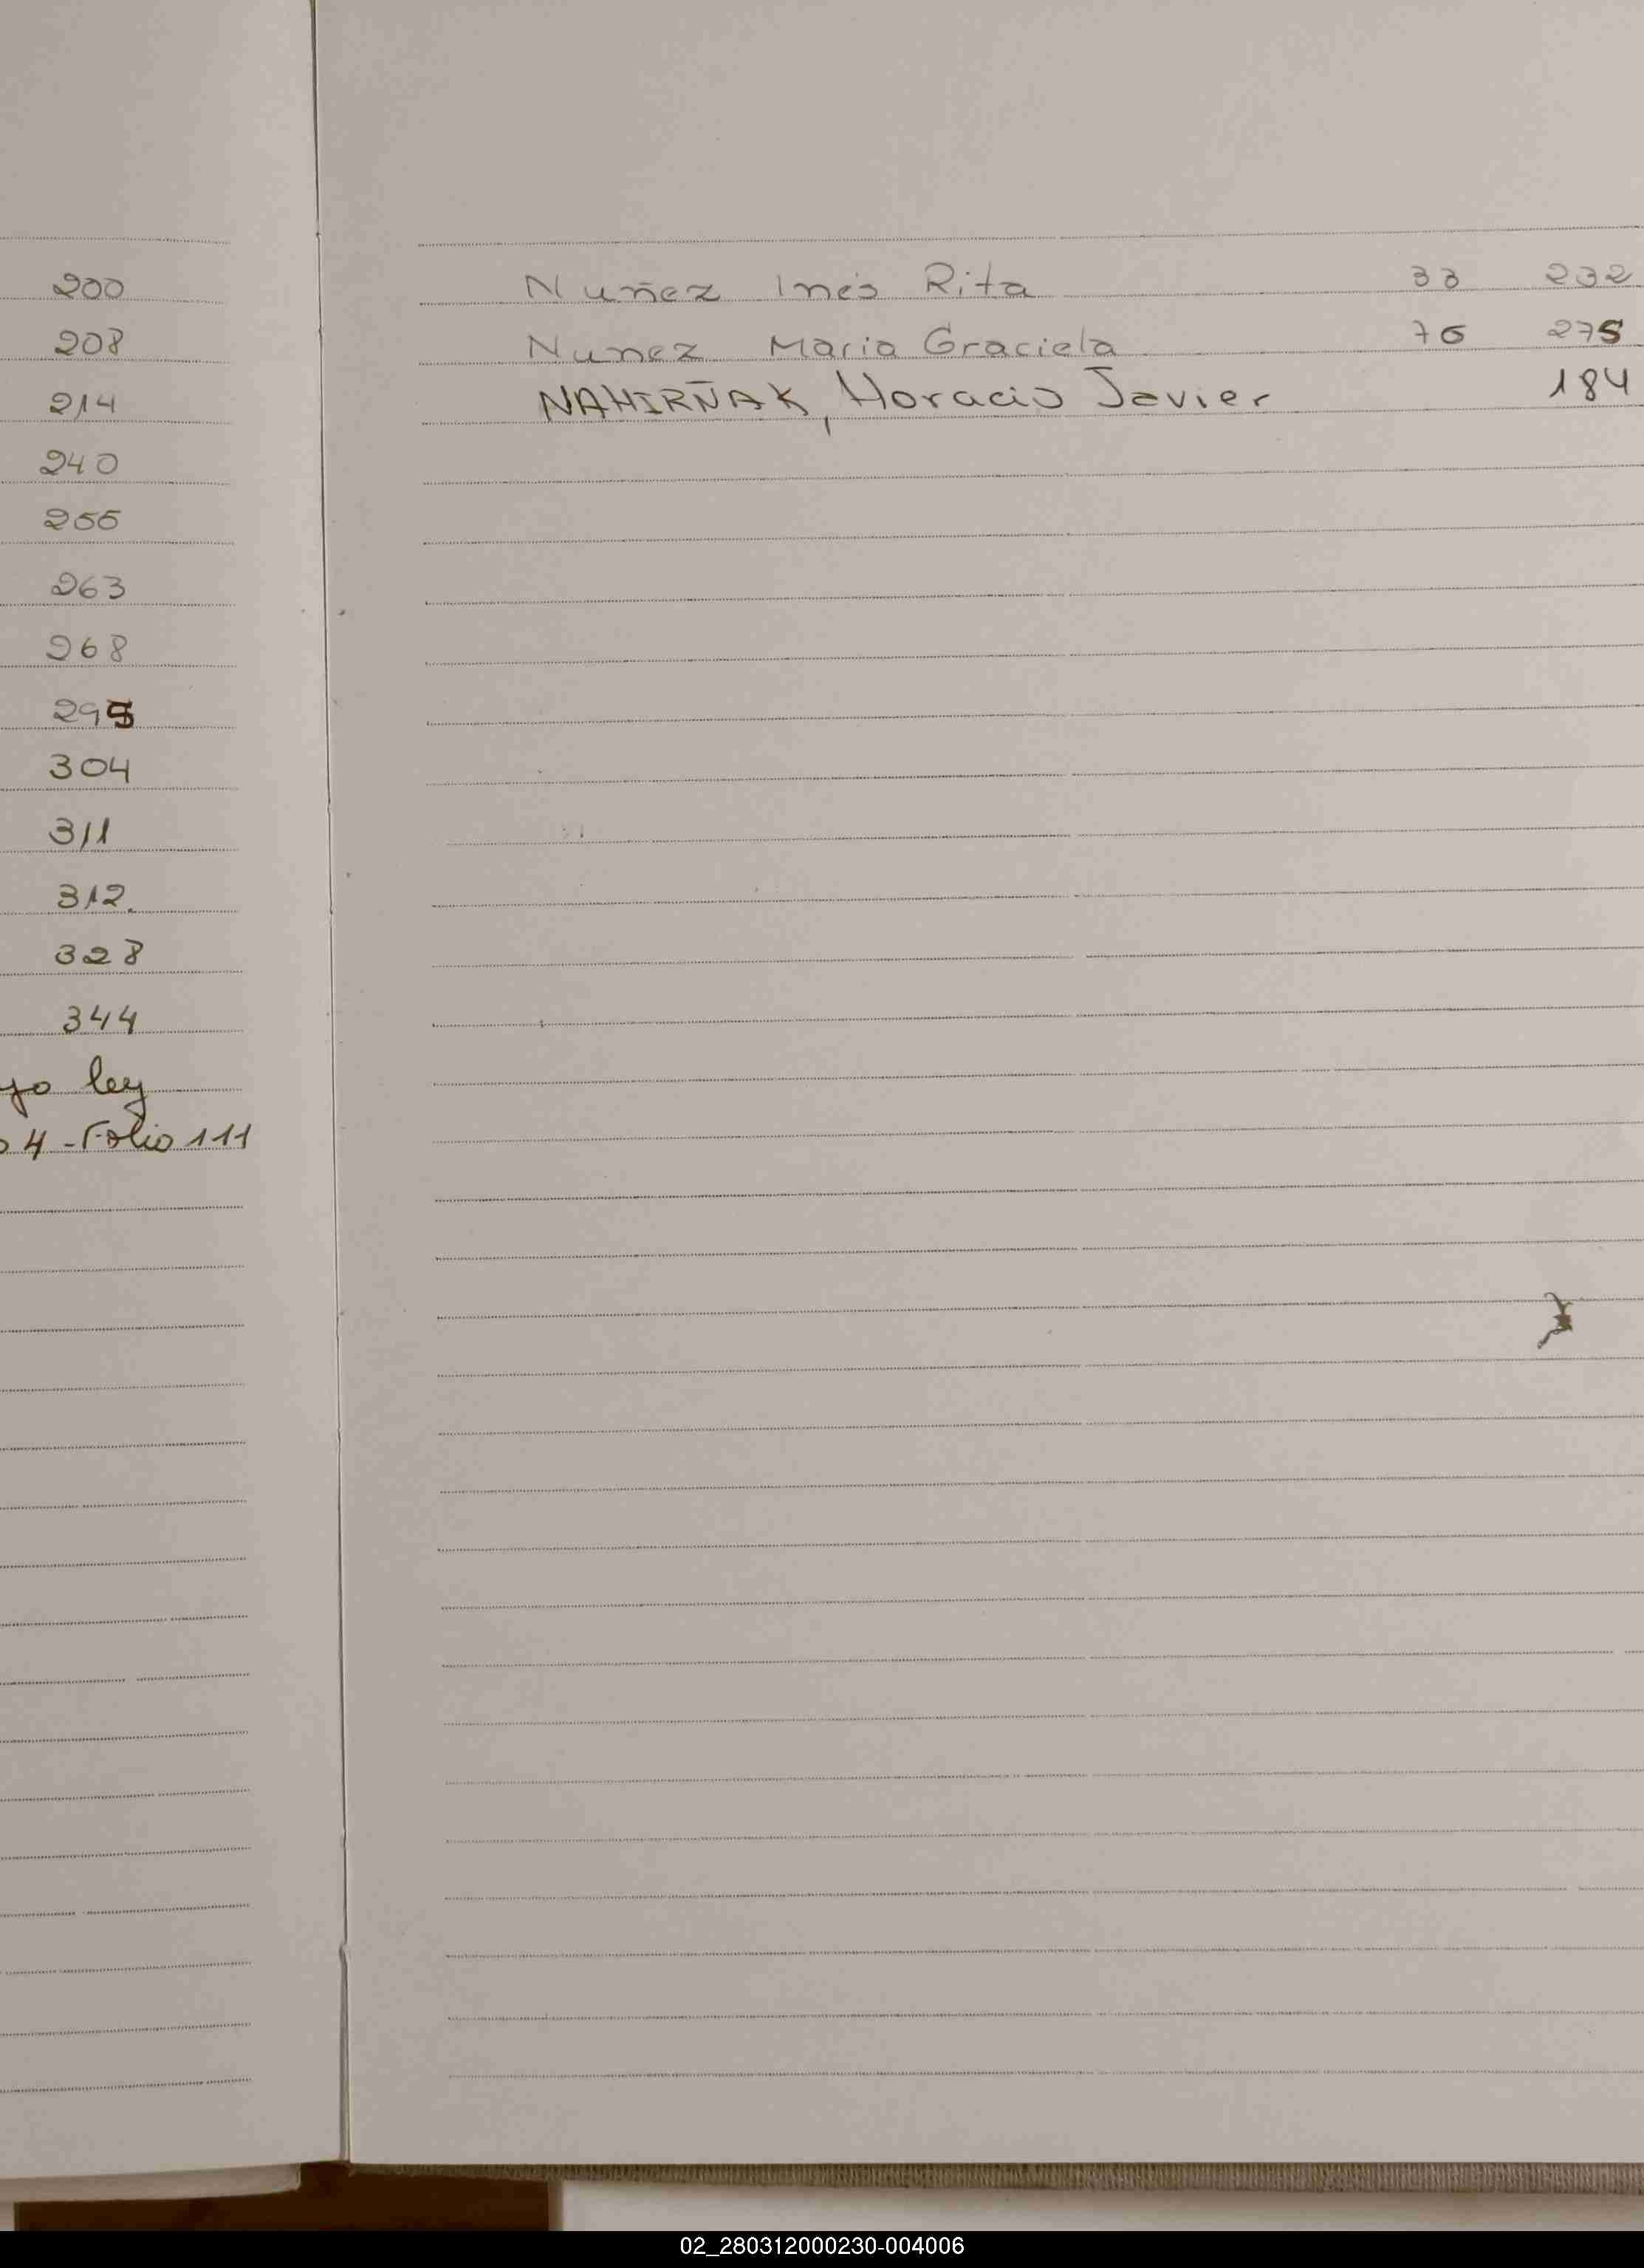 200
208
214
240
255
263
268
295
304
311
312.
328
344
yo ley
o 4 - Folio 111
Nuñez Inés Rita 33 232
Nunez Maria Graciela 76 275
NAHIRÑAK, Horacio Javier 184
02_280312000230-004006